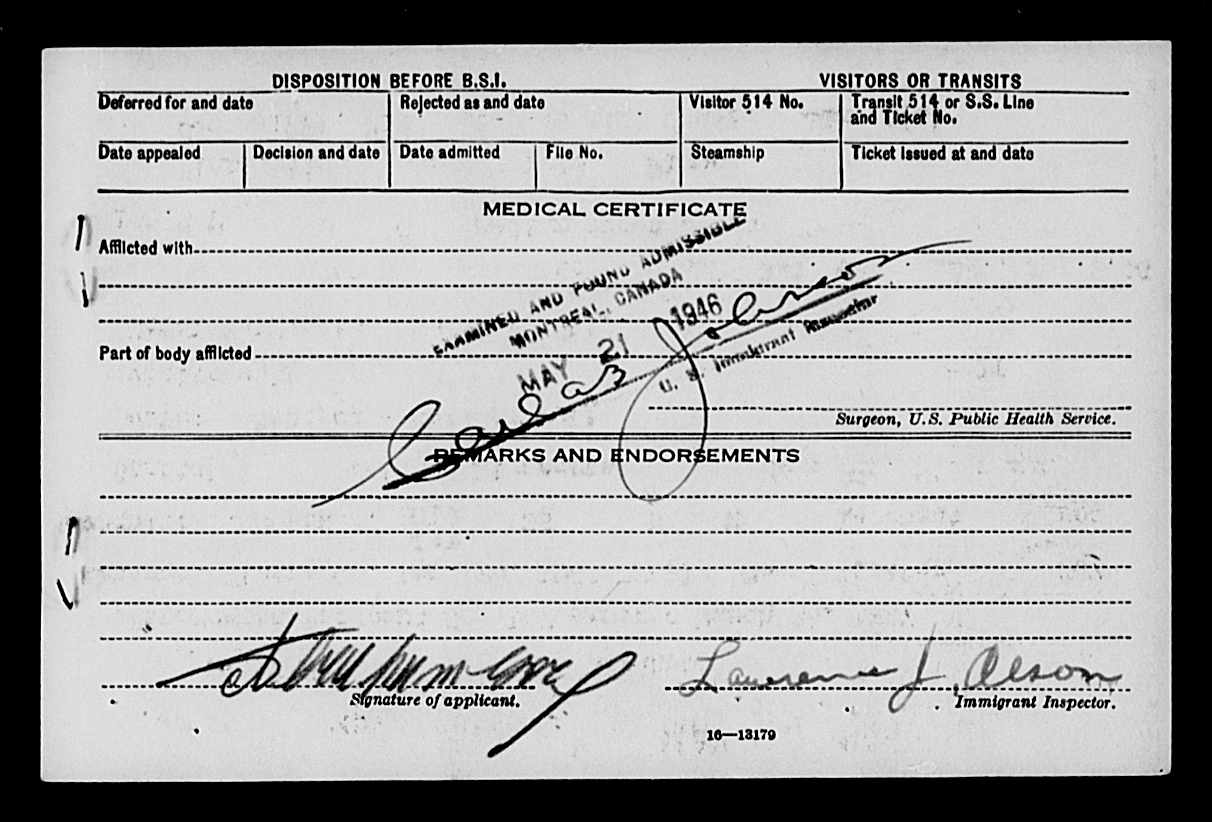 DISPOSITION BEFORE B.S.I. VISITORS OR TRANSITS
Deferred for and date Rejected as and date Visitor 514 No. Transit 514 or S.S. Line and Ticket No.
Date appealed Decision and date Date admitted File No. Steamship Ticket issued at and date
MEDICAL CERTIFICATE
Afflicted with
EXAMINED AND FOUND ADMISSIBLE
MONTREAL, CANADA
MAY 21 1946
U. S. Immigrant Inspector
Part of body afflicted
Surgeon, U.S. Public Health Service.
REMARKS AND ENDORSEMENTS
Lawrence J. Olson
Signature of applicant. Immigrant Inspector.
16—13179